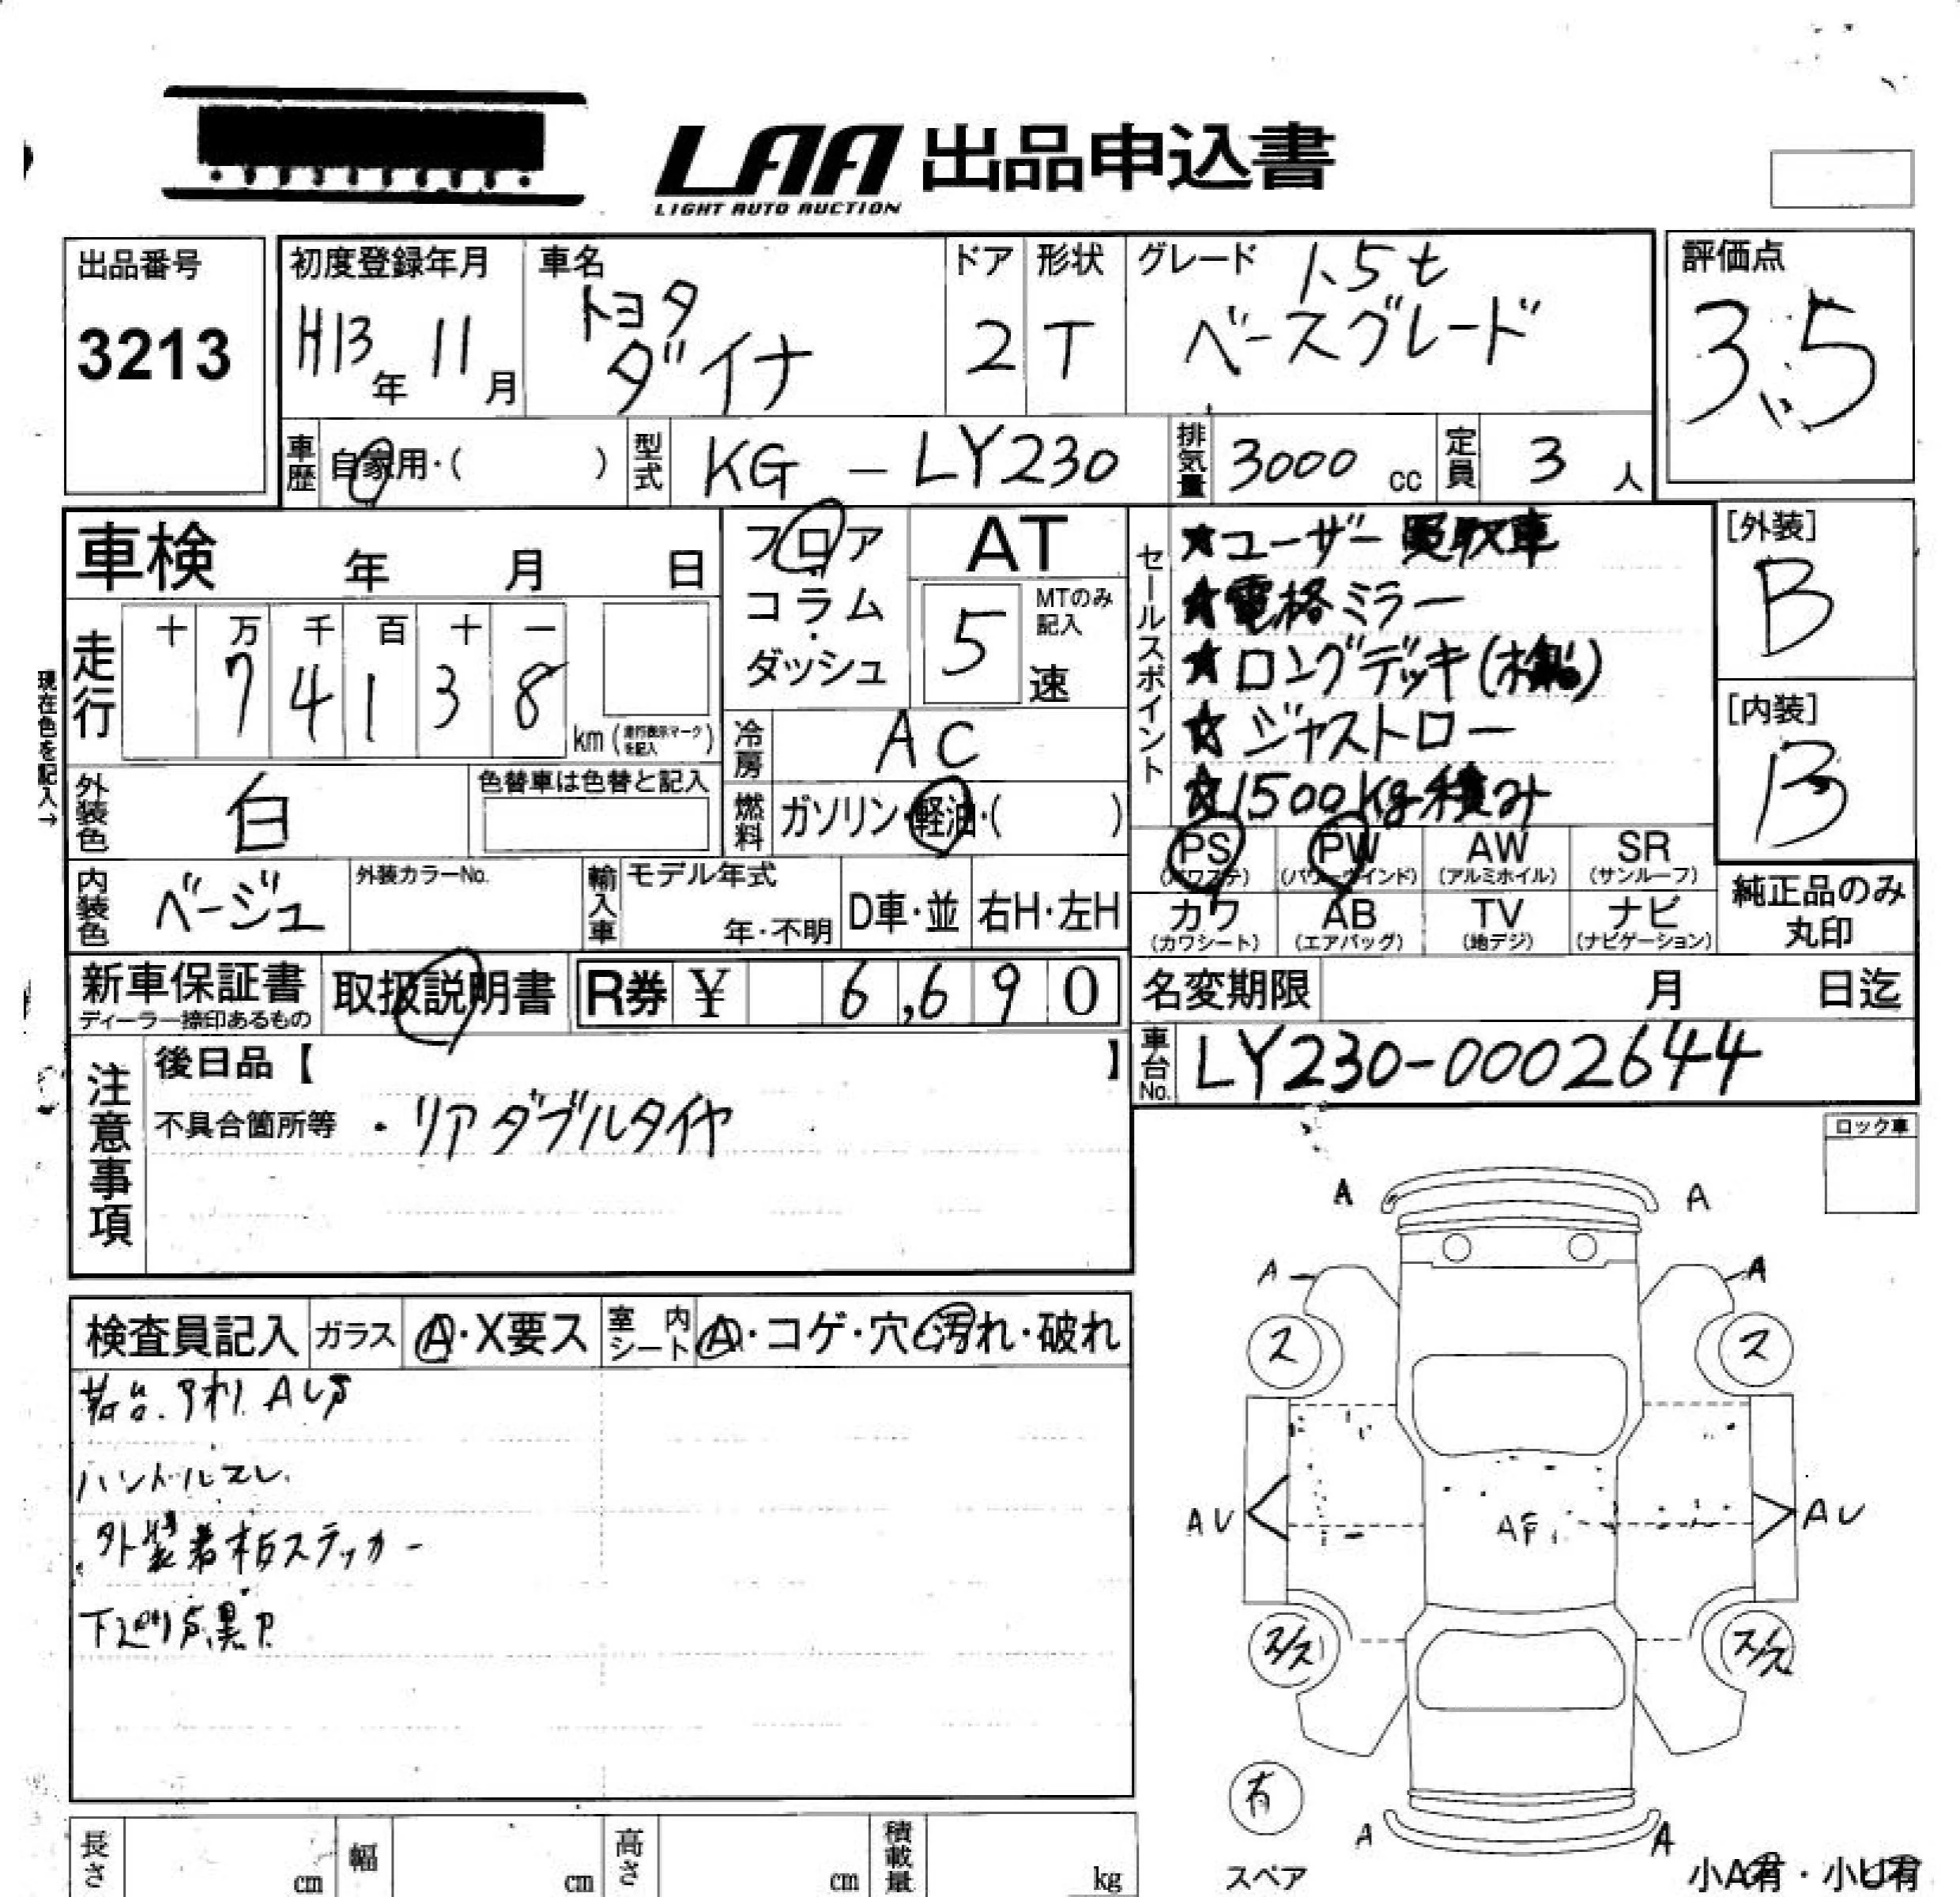 LAA 出品申込書
LIGHT AUTO AUCTION
出品番号
3213
初度登録年月
H13年 11月
車名
トヨタ
ダイナ
ドア
2
形状
T
グレード 1.5t
ベースグレード
評価点
3.5
車歴 自家用・( )
型式 KG-LY230
排気量 3000 cc
定員 3 人
車検 年 月 日
フロア・コラム・ダッシュ
AT
5 速
MTのみ記入
走行
十 万 千 百 十 一
7 4 1 3 8
km (走行表示マークを記入)
現在色を記入→
冷房 AC
外装色 白
色替車は色替と記入
燃料 ガソリン・軽油・( )
内装色 ベージュ
外装カラーNo.
輸入車
モデル年式
年・不明
D車・並
右H・左H
セールスポイント
★ユーザー買取車
★電格ミラー
★ロングデッキ(木製)
★ジャストロー
★1500kg積み
[外装]
B
[内装]
B
PS (パワステ)
PW (パワーウインド)
AW (アルミホイル)
SR (サンルーフ)
カワ (カワシート)
AB (エアバッグ)
TV (地デジ)
ナビ (ナビゲーション)
純正品のみ
丸印
新車保証書
ディーラー捺印あるもの
取扱説明書
R券 ¥ 6,690
名変期限 月 日迄
車台No. LY230-0002644
注意事項
後日品【 】
不具合箇所等 ・リアダブルタイヤ
ロック車
検査員記入
ガラス A・X要ス
室内シート A・コゲ・穴・汚れ・破れ
荷台.アオリ AU
ハンドルスレ
外装看板ステッカー
下廻り
A A
A A
ス ス
AU AU
ス/ス ス/ス
有
スペア
A A
小A有・小U有
長さ cm
幅 cm
高さ cm
積載量 kg